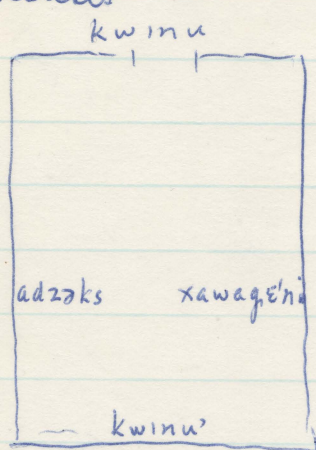 kwınu
adzəks xawag̣ɛ'ni
kwınu'